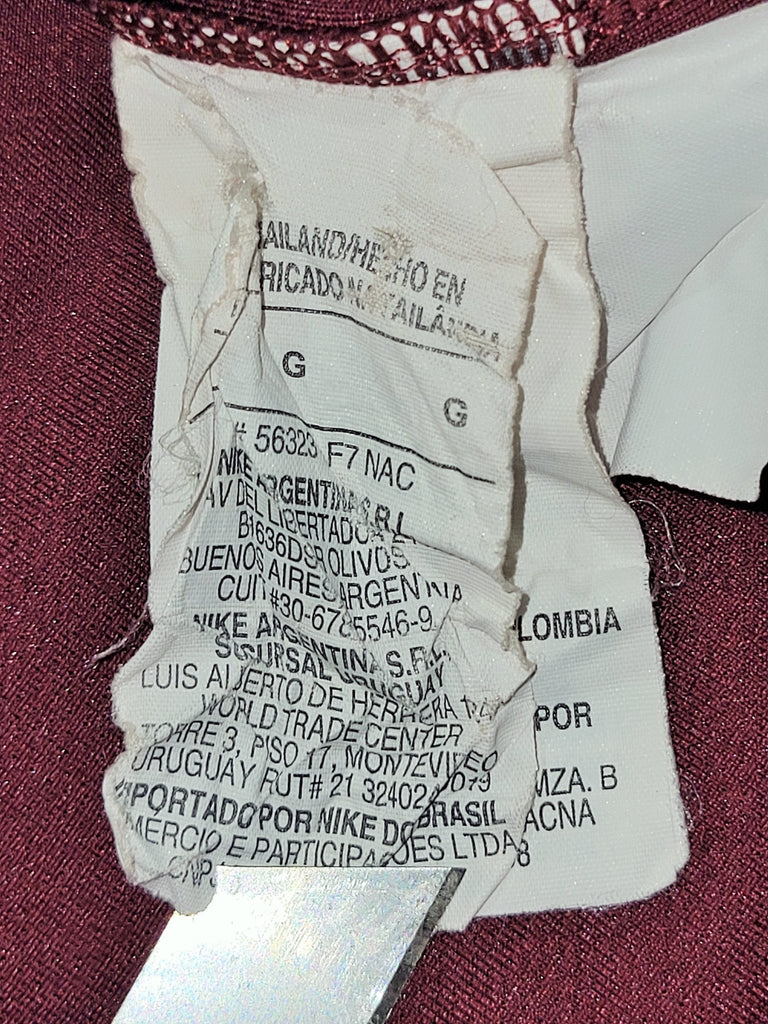 AILAND/HECHO EN
RICADO NA TAILÂNDIA
G
G
# 56323 F7 NAC
NIKE ARGENTINA S.R.L.
AV DEL LIBERTADOR
B1636DSR OLIVOS
BUENOS AIRES ARGENTINA
CUIT #30-67 5546-9
NIKE ARGENTINA S.R.L.
SUCURSAL URUGUAY
LUIS ALBERTO DE HERRERA
WORLD TRADE CENTER
TORRE 3, PISO 17, MONTEVIDEO
URUGUAY RUT# 21 32402 0079
IMPORTADO POR NIKE DO BRASIL
MERCIO E PARTICIPAÇÕES LTDA
CNPJ
LOMBIA
POR
MZA. B
ACNA
8